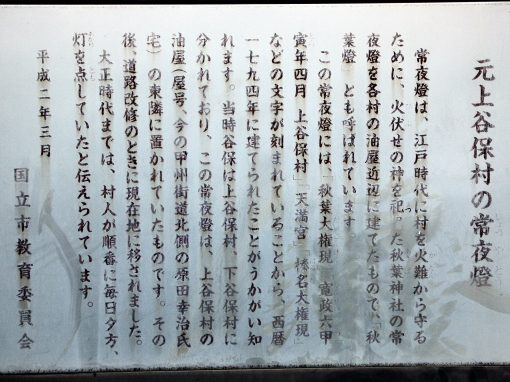 元上谷保村の常夜燈
常夜燈は、江戸時代に村を火難から守る
ために、火伏せの神を祀った秋葉神社の常
夜燈を各村の油屋近辺に建てたもので、「秋
葉燈」とも呼ばれています
この常夜燈には、「秋葉大権現」「寛政六甲
寅年四月 上谷保村」「天満宮」「榛名大権現」
などの文字が刻まれていることから、西暦
一七九四年に建てられたことがうかがい知
れます。当時谷保は上谷保村、下谷保村に
分かれており、この常夜燈は、上谷保村の
油屋(屋号、今の甲州街道北側の原田幸治氏
宅)の東隣に置かれていたものです。その
後、道路改修のときに現在地に移されました。
大正時代までは、村人が順番に毎日夕方、
灯を点していたと伝えられています。
平成二年三月
国立市教育委員会